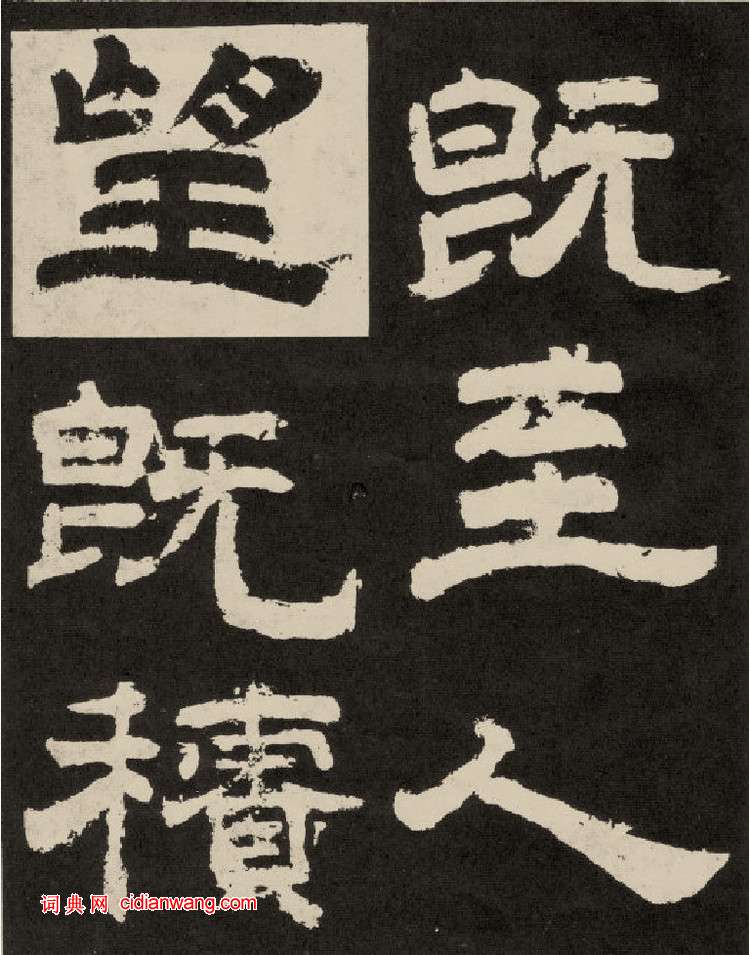 既至人
望既積
词典网 cidianwang.com